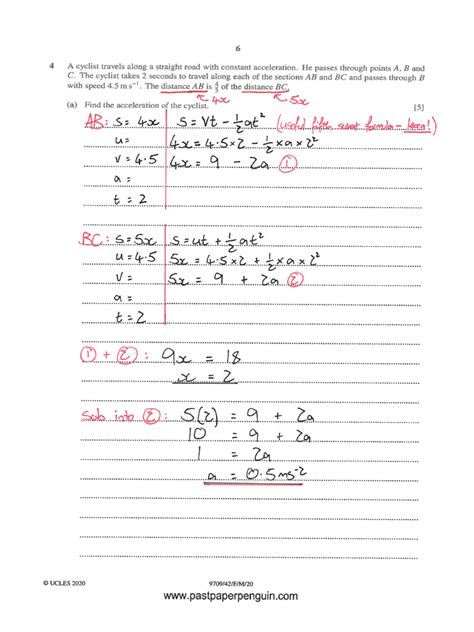 6
4 A cyclist travels along a straight road with constant acceleration. He passes through points A, B and
C. The cyclist takes 2 seconds to travel along each of the sections AB and BC and passes through B
with speed 4.5 m s⁻¹. The distance AB is 4/5 of the distance BC.
4x 5x
(a) Find the acceleration of the cyclist. [5]
AB: s = 4x s = vt - ½at² (useful fifth suvat formula - learn!)
u = 4x = 4.5×2 - ½×a×2²
v = 4.5 4x = 9 - 2a ①
a =
t = 2
BC: s = 5x s = ut + ½at²
u = 4.5 5x = 4.5×2 + ½×a×2²
v = 5x = 9 + 2a ②
a =
t = 2
① + ②: 9x = 18
x = 2
Sub into ②: 5(2) = 9 + 2a
10 = 9 + 2a
1 = 2a
a = 0.5 ms⁻²
© UCLES 2020 9709/42/F/M/20
www.pastpaperpenguin.com